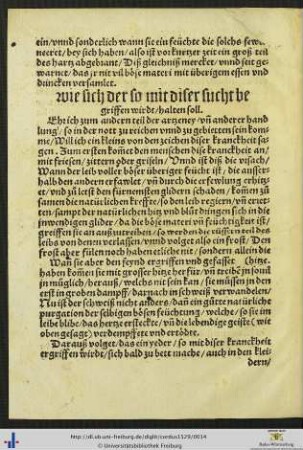 ein/vnnd sonderlich wann sie ein feüchte die solchs fewr
neeret/bey sich haben/also ist vor kurtzer zeit ein groß teil
des hartz abgebrant/Diß gleichniß mercket/vnnd seit ge-
warnet/das jr nit vil böse materi mit überigem essen vnd
drincken versamlet.
wie sich der so mit diser sucht be
griffen wirdt/halten soll.
Eh ich zum andern teil der artzeney vñ anderer hand
lung/so in der nott zu reichen vnnd zu gebietten sein kom-
me/Will ich ein kleins von den zeichen diser kranckheit sa-
gen. Zum ersten kom̃et den menschen dise kranckheit an/
mit friesen/zittern oder griseln/Vnnd ist diß die vrsach/
Wann der leib voller böser überiger feücht ist/die ausser-
halb den andern erfawlet/vñ durch die erfewlung erhitz-
et/vnd zů letst den fürnemsten glidern schaden/kom̃en zů
samen die natürlichen krefft/so den leib regiern/vñ erret-
ten/sampt der natürlichen hitz vnd blůt/dringen sich in die
jnwendigen glider/da die böse materi vñ feüchtigkeit ist/
greiffen sie an auß zů treiben/so werden die eüssern teil des
leibs von denen verlassen/vnnd volget also ein frost/Den
frost aber fülen noch haben etliche nit/sondern allein die
Wañ sie aber den feynd ergriffen vnd gefasset/hitze.
haben kom̃en sie mit grosser hitz herfür/vñ treibẽ jn souil
jn müglich/herauß/welchs nit sein kan/sie müssen jn den
erst in groben dampff/darnach in schweiß verwandelen/
Nu ist der schweiß nicht anders/dañ ein gůte natürliche
purgation der selbigen bösen feüchtung/welche/so sie im
leibe blibe/das hertze ersteckte/vñ die lebendige geiste (wie
oben gesagt) verdempffet vnd ertödte.
Darauß volget/das ein yeder/so mit diser kranckheit
ergriffen wirdt/sich bald zu bett mache/auch in den klei-
dern/
http://dl.ub.uni-freiburg.de/diglit/cordus1529/0014
© Universitätsbibliothek Freiburg
Baden-Württemberg